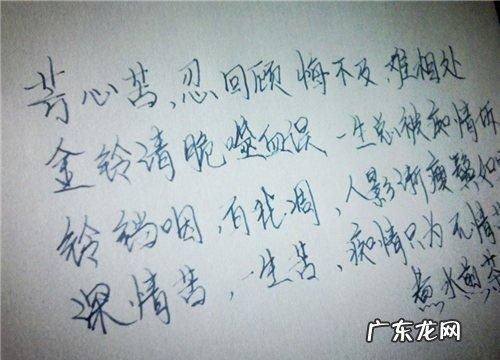 芳心苦,忍回顾 悔不及、难相处
金铃清脆噬血误 一生总被痴情所
铃铛咽,百我凋,人影渐瘦鬓如
深情苦,一生苦,痴情只为无情
煮水煎茶
广东龙网